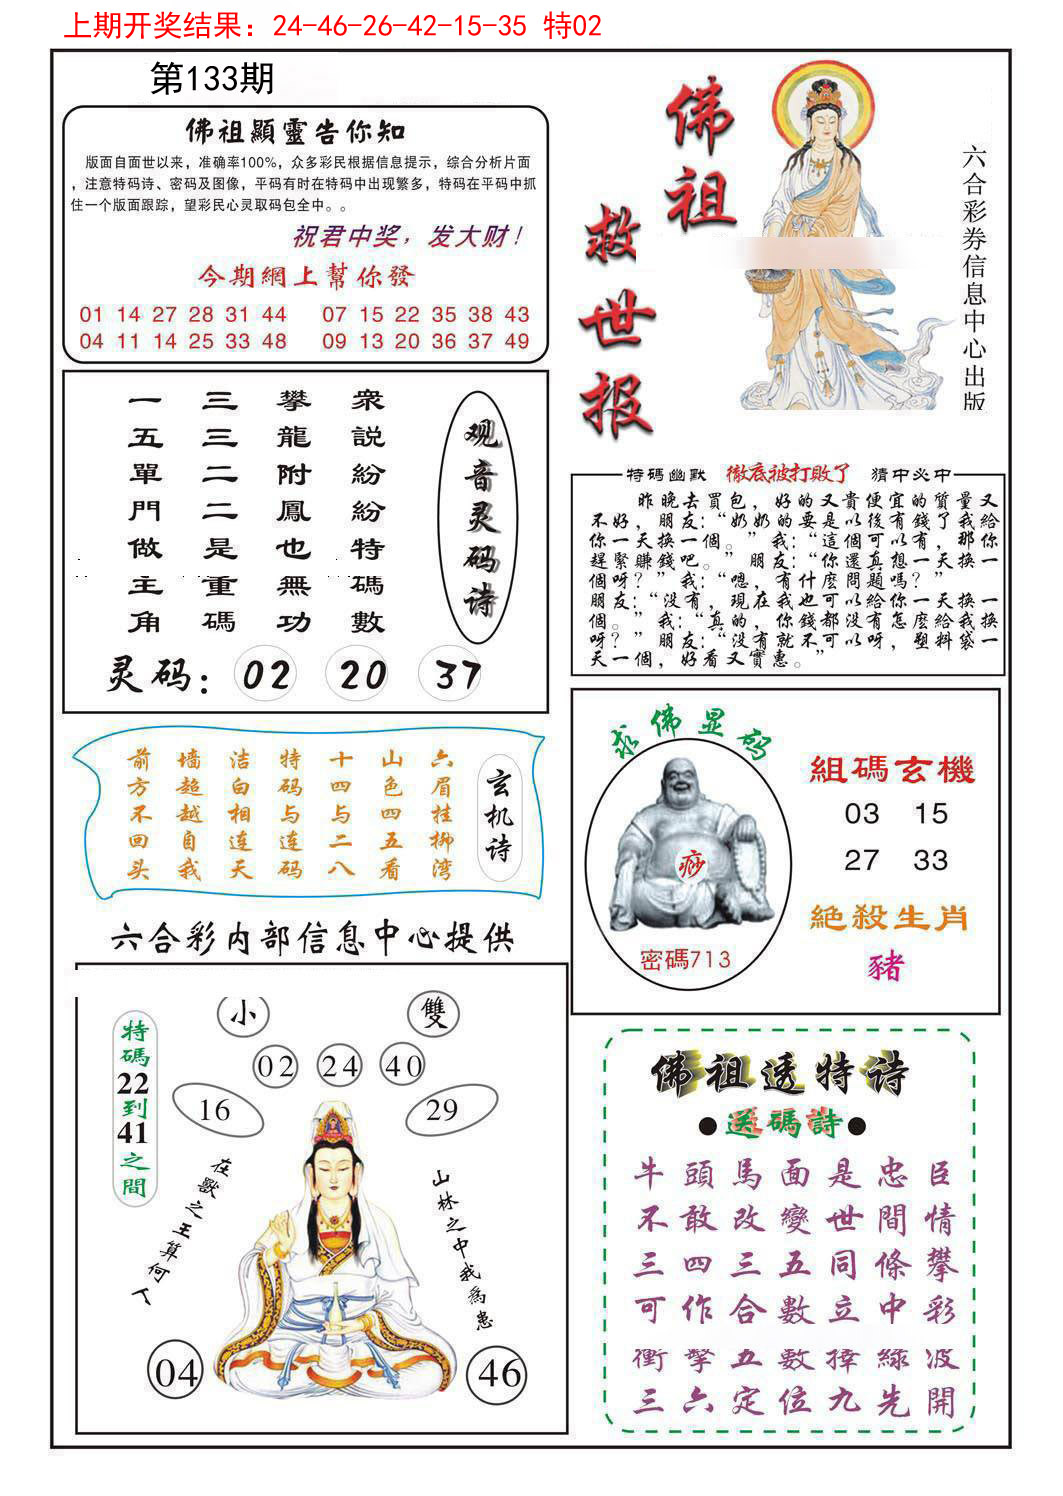 上期开奖结果：24-46-26-42-15-35 特02
第133期
佛祖顯靈告你知
版面自面世以来，准确率100%，众多彩民根据信息提示，综合分析片面
，注意特码诗、密码及图像，平码有时在特码中出现繁多，特码在平码中抓
住一个版面跟踪，望彩民心灵取码包全中。。
祝君中奖，发大财！
今期網上幫你發
01 14 27 28 31 44 07 15 22 35 38 43
04 11 14 25 33 48 09 13 20 36 37 49
佛祖
救世报
六合彩券信息中心出版
观音灵码诗
衆說紛紛特碼數
攀龍附鳳也無功
三三二二是重碼
一五單門做主角
灵码：02 20 37
特碼幽默 徹底被打敗了 猜中必中
昨晚去買包，好的又貴便宜的質量又
不好，朋友：“奶奶的要是以後有錢了我給
你一天换一個。”我：“這個可以有，那你
趕緊賺錢吧。”朋友：“你還真想一天换一
個呀？”我：“嗯，有什麽問題嗎？”
朋友：“没有，現在我也可以給你一天换一
個。”我：“真的，你錢都没有怎麽給我换
呀？”朋友：“没有就不可以呀，塑料袋一
天一個，好看又實惠。”
玄机诗
六眉挂柳湾
山色四五看
十四与二八
特码与连码
洁白相连天
墙超越自我
前方不回头
求佛显码
痧
密碼713
組碼玄機
03 15
27 33
絕殺生肖
豬
六合彩内部信息中心提供
特碼22到41之間
小 雙
02 24 40
16 29
在獸之王算何人
山林之中我爲患
04 46
佛祖透特诗
●送碼詩●
牛頭馬面是忠臣
不敢改變世間情
三四三五同條攀
可作合數立中彩
衝擊五數摔綠波
三六定位九先開